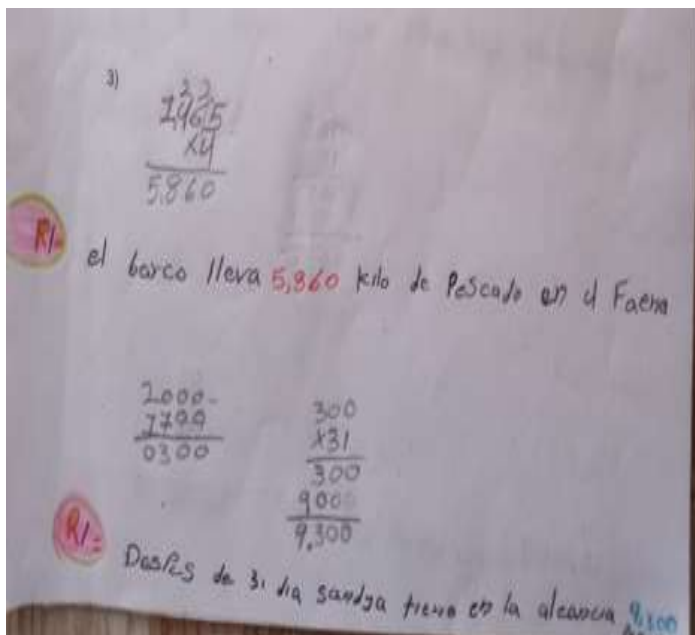 3)
2 2
1,465
x4
5.860
R/=
el barco lleva 5,860 kilo de Pescado en 4 Faena
2000-
1700
0300
300
x31
300
900
9,300
R/=
de 31 dia sandya tiene en la alcancia 9,300